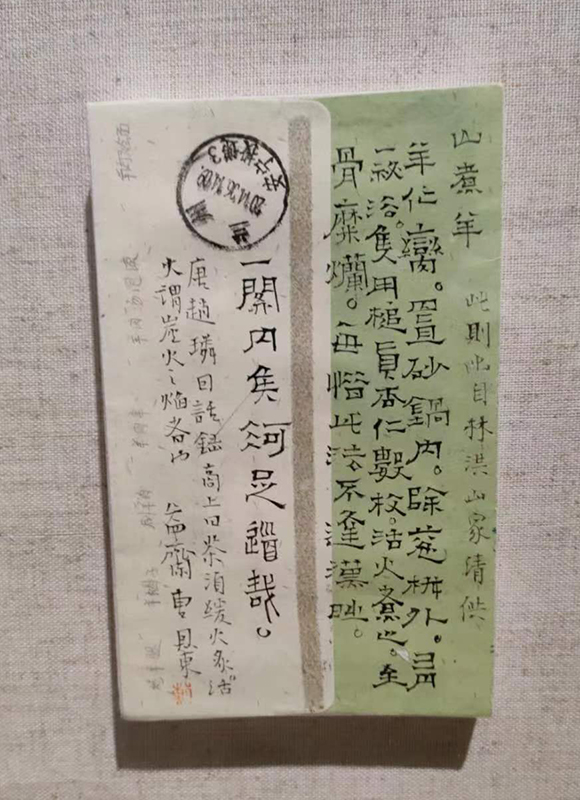 山煮羊
此則出自林洪山家清供
羊作臠。置砂鍋內。除蔥椒外。有
一祕法。隻用槌真杏仁數枚。活火煮之。至
骨糜爛。每惜此法不逢漢時。
一關内侯何足道哉。
唐趙璘因話錄 上曰茶須緩火炙活
火謂炭火之焰者也 益齋曹 東